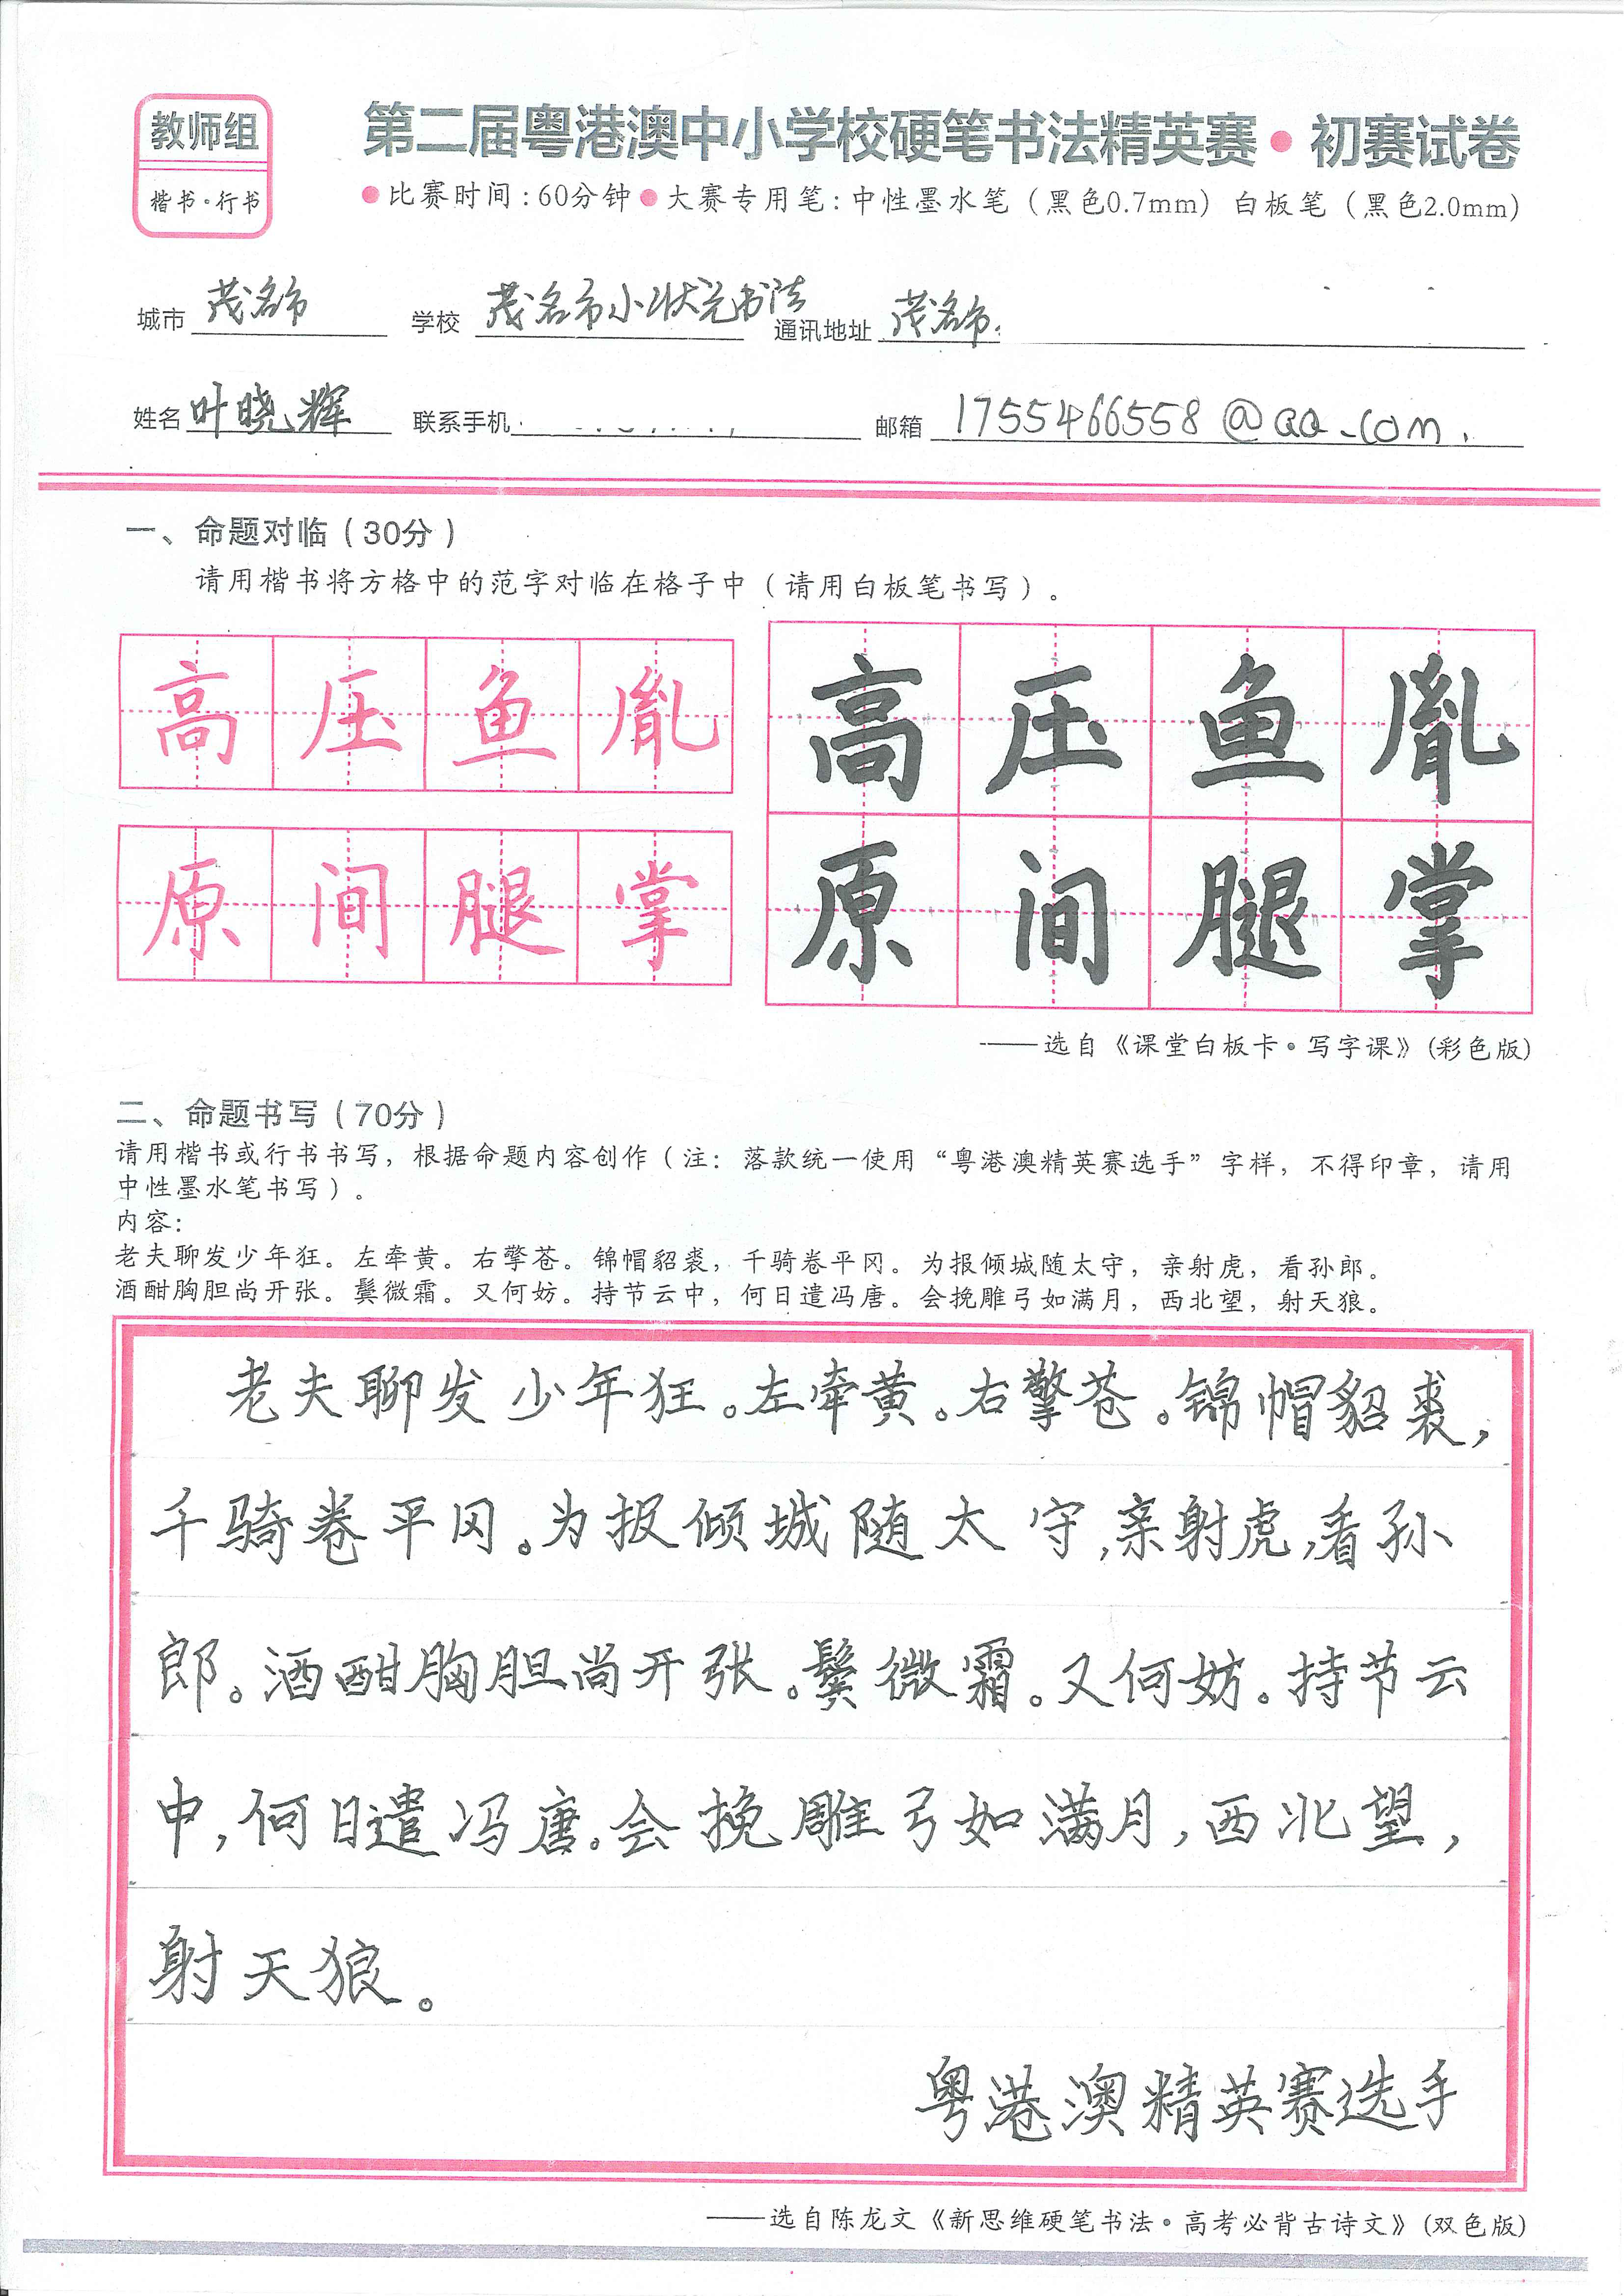 教师组
楷书·行书
第二届粤港澳中小学校硬笔书法精英赛·初赛试卷
●比赛时间：60分钟●大赛专用笔：中性墨水笔（黑色0.7mm）白板笔（黑色2.0mm）
城市 茂名市 学校 茂名市小状元书法 通讯地址 茂名市
姓名 叶晓辉 联系手机 邮箱 1755466558@QQ.com.
一、命题对临（30分）
请用楷书将方格中的范字对临在格子中（请用白板笔书写）。
高压鱼胤
原间腿掌
高压鱼胤
原间腿掌
——选自《课堂白板卡·写字课》(彩色版)
二、命题书写（70分）
请用楷书或行书书写，根据命题内容创作（注：落款统一使用“粤港澳精英赛选手”字样，不得印章，请用
中性墨水笔书写）。
内容：
老夫聊发少年狂。左牵黄。右擎苍。锦帽貂裘，千骑卷平冈。为报倾城随太守，亲射虎，看孙郎。
酒酣胸胆尚开张。鬓微霜。又何妨。持节云中，何日遣冯唐。会挽雕弓如满月，西北望，射天狼。
老夫聊发少年狂。左牵黄。右擎苍。锦帽貂裘，
千骑卷平冈。为报倾城随太守，亲射虎，看孙
郎。酒酣胸胆尚开张。鬓微霜。又何妨。持节云
中，何日遣冯唐。会挽雕弓如满月，西北望，
射天狼。
粤港澳精英赛选手
——选自陈龙文《新思维硬笔书法·高考必背古诗文》(双色版)